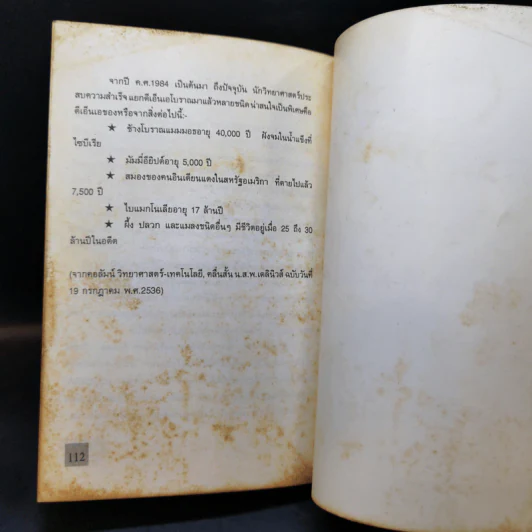 จากปี ค.ศ.1984 เป็นต้นมา ถึงปัจจุบัน นักวิทยาศาสตร์ประ
สบความสำเร็จ แยกดีเอ็นเอโบราณมาแล้วหลายชนิด น่าสนใจเป็นพิเศษคือ
ดีเอ็นเอของหรือจากสิ่งต่อไปนี้:-
★ ช้างโบราณแมมมอธอายุ 40,000 ปี ฝังจมในน้ำแข็งที่
ไซบีเรีย
★ มัมมี่อียิปต์อายุ 5,000 ปี
★ สมองของคนอินเดียนแดงในสหรัฐอเมริกา ที่ตายไปแล้ว
7,500 ปี
★ ใบแมกโนเลียอายุ 17 ล้านปี
★ ผึ้ง ปลวก และแมลงชนิดอื่นๆ มีชีวิตอยู่เมื่อ 25 ถึง 30
ล้านปีในอดีต
(จากคอลัมน์ วิทยาศาสตร์-เทคโนโลยี, คลื่นสั้น น.ส.พ.เดลินิวส์ ฉบับวันที่
19 กรกฎาคม พ.ศ.2536)
112